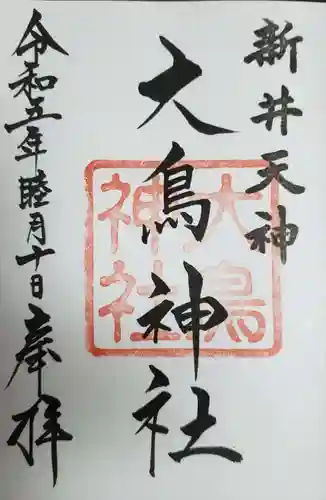 新井天神
大鳥神社
大鳥
神社
令和五年睦月十日奉拝